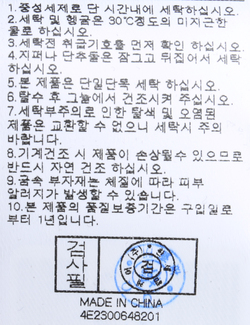 1.중성세제로 단 시간내에 세탁하십시오.
2.세탁 및 헹굼은 30℃정도의 미지근한
물로 하십시오.
3.세탁전 취급기호를 먼저 확인 하십시오.
4.지퍼나 단추는 잠그고 뒤집어서 세탁
하십시오.
5.본 제품은 단일단독 세탁 하십시오.
6.탈수 후 그늘에서 건조시켜 주십시오.
7.세탁부주의로 인한 탈색 및 오염된
제품은 교환할 수 없으니 세탁시 주의
바랍니다.
8.기계건조 시 제품이 손상될수 있으므로
반드시 자연 건조 하십시오.
9.금속 부자재는 체질에 따라 피부
알러지가 발생할 수 있습니다.
10.본 제품의 품질보증기간은 구입일로
부터 1년입니다.
검사필
검
MADE IN CHINA
4E2300648201